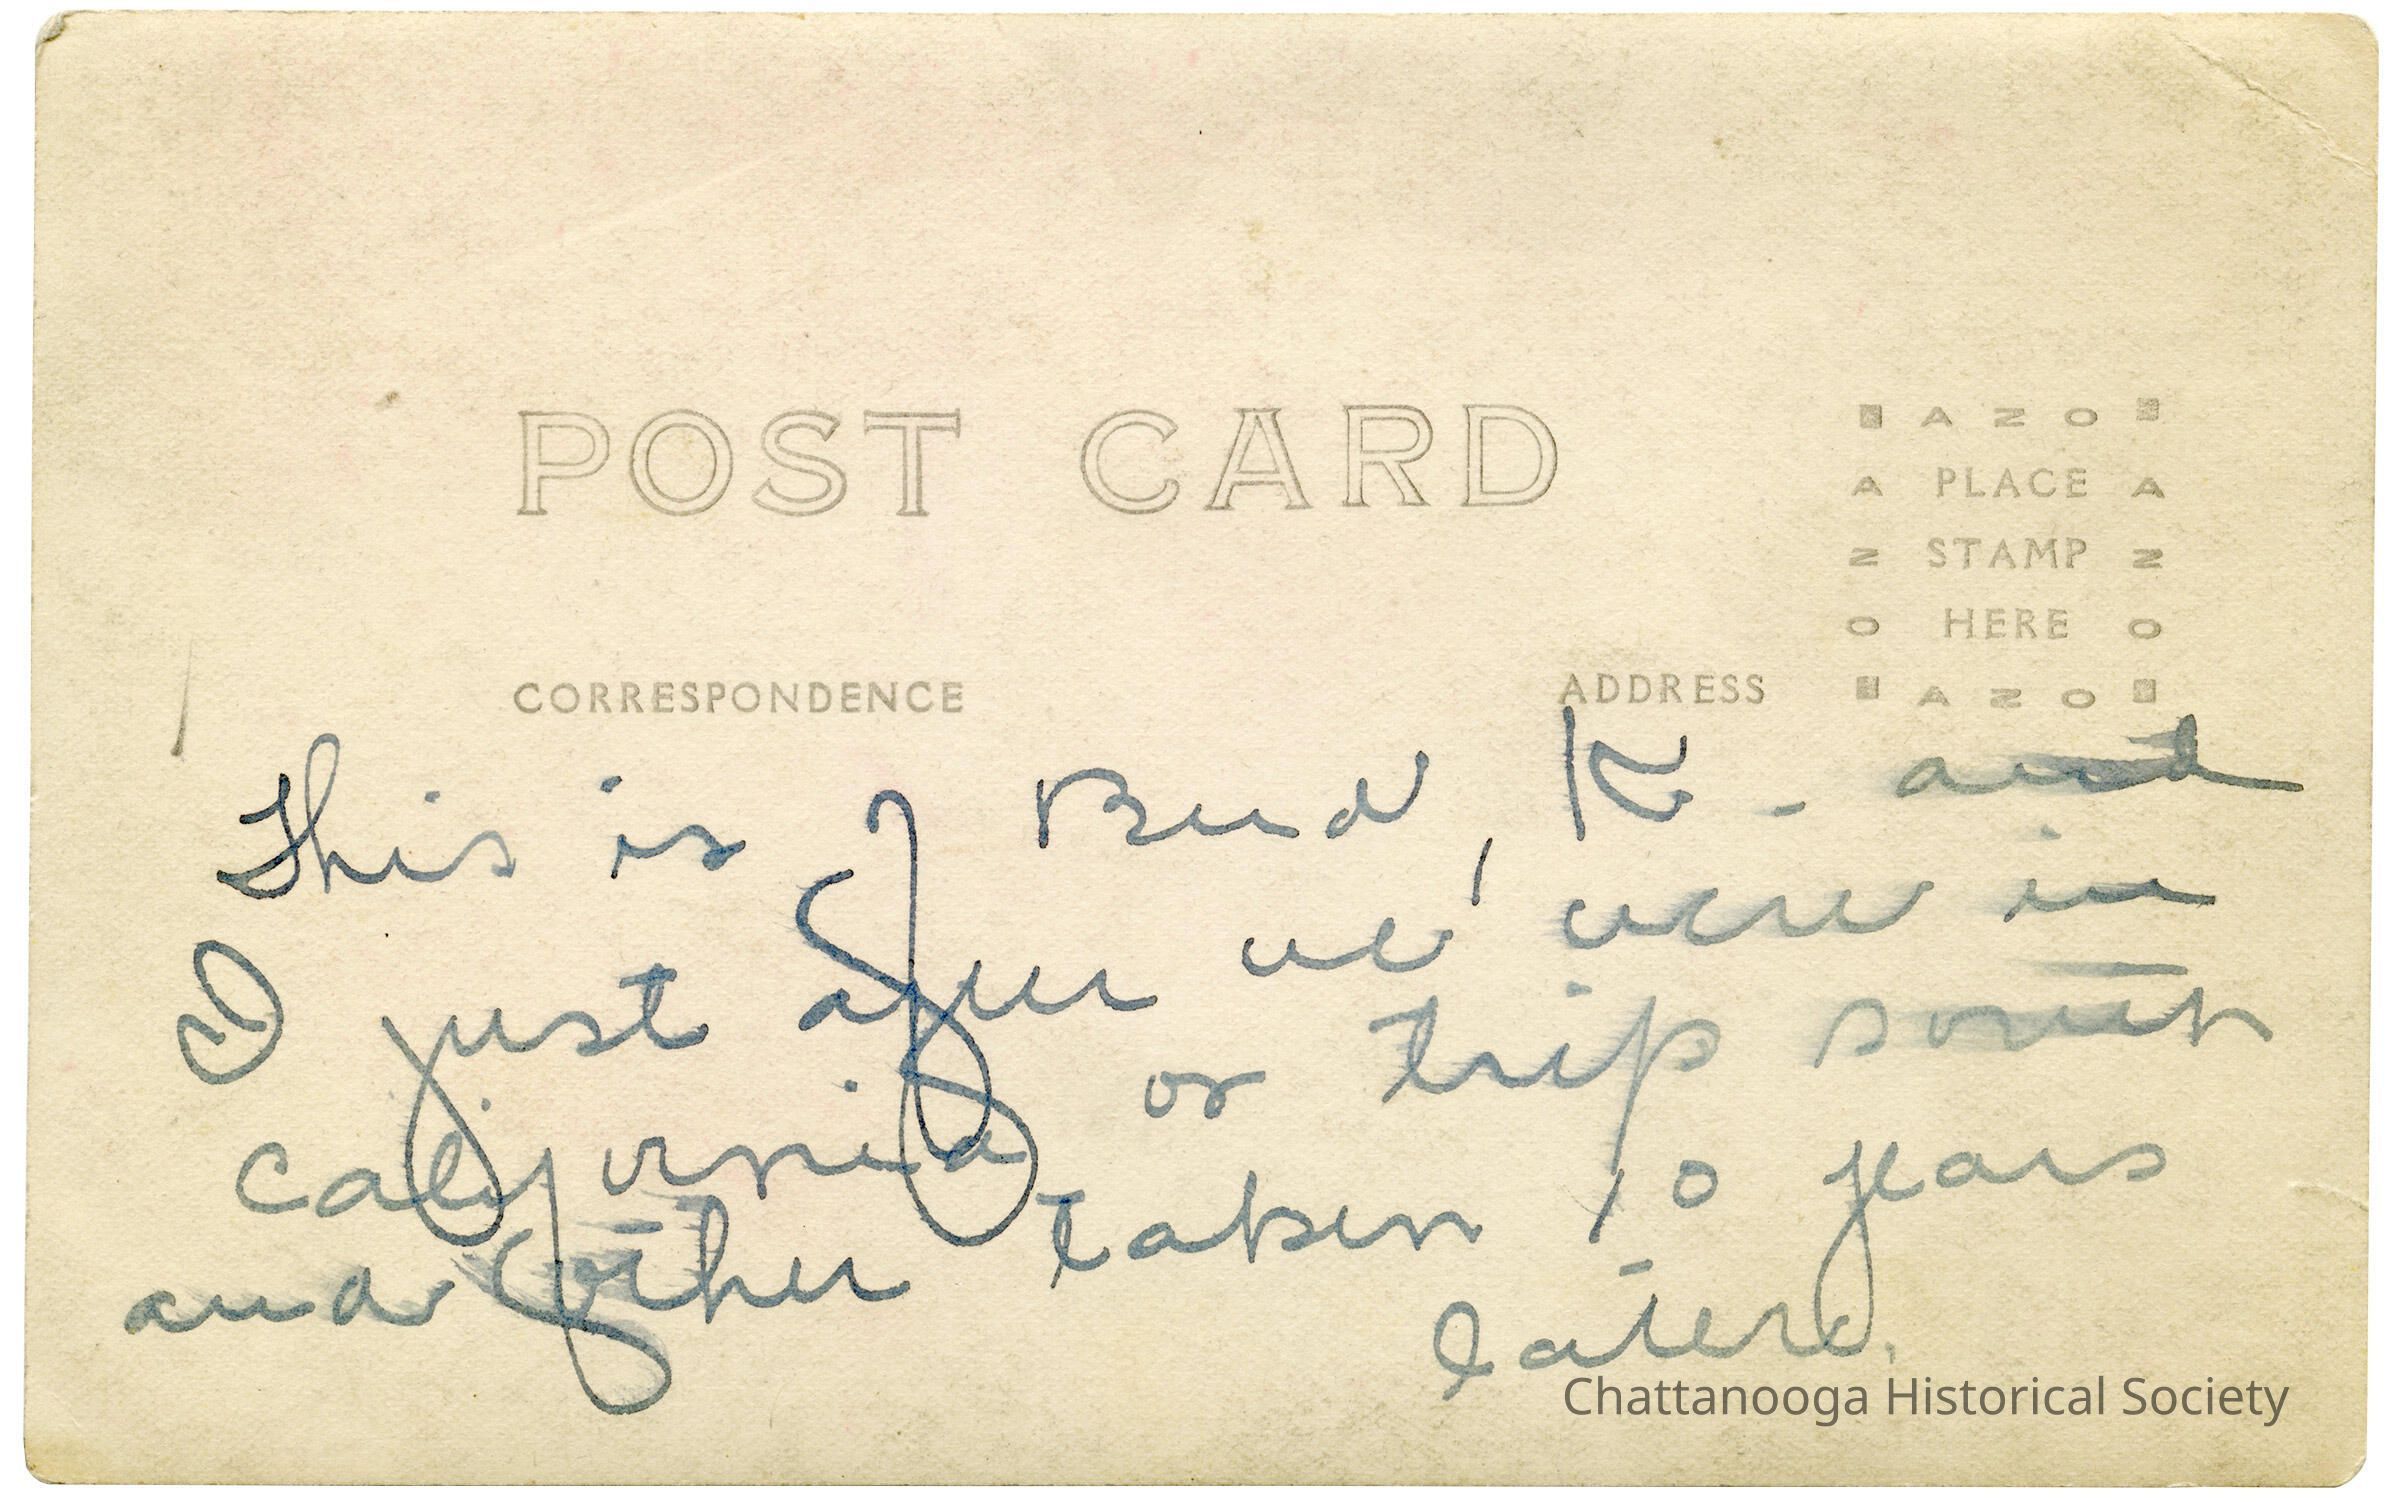 POST CARD
AZO
A PLACE A
N STAMP N
O HERE O
AZO
CORRESPONDENCE ADDRESS
This is of Bud, K - and
I just after we were in
California or trip south
and other taken 10 years
later.
Chattanooga Historical Society